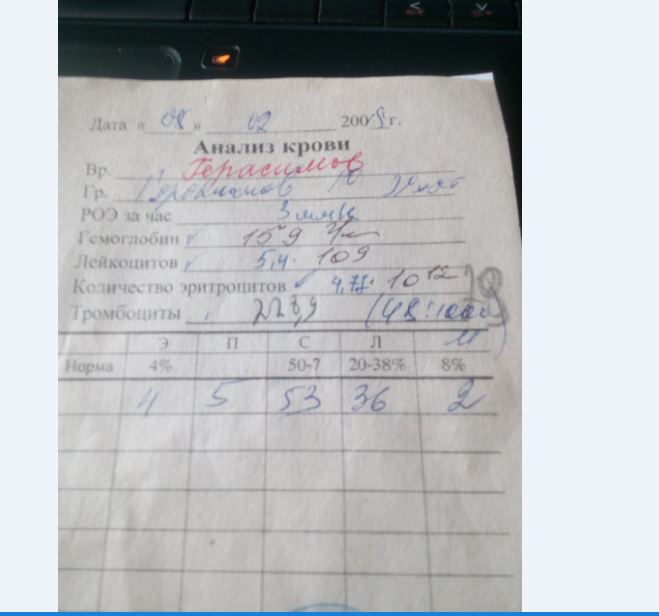 Дата « 08 » 02 200 г.
Анализ крови
Вр. Герасимов
Гр.
РОЭ за час 3 мм/ч
Гемоглобин 159 г/л
Лейкоцитов 5,4 · 10 9
Количество эритроцитов 4,77 · 10 12
Тромбоциты 223,9
Э П С Л М
Норма 4% 50-7 20-38% 8%
4 5 53 36 2